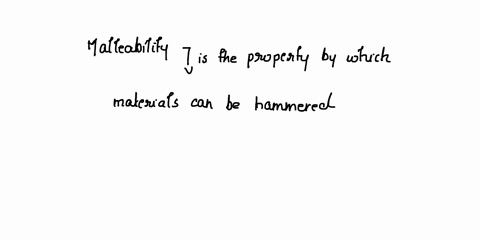 Malleability is the property by which
materials can be hammered